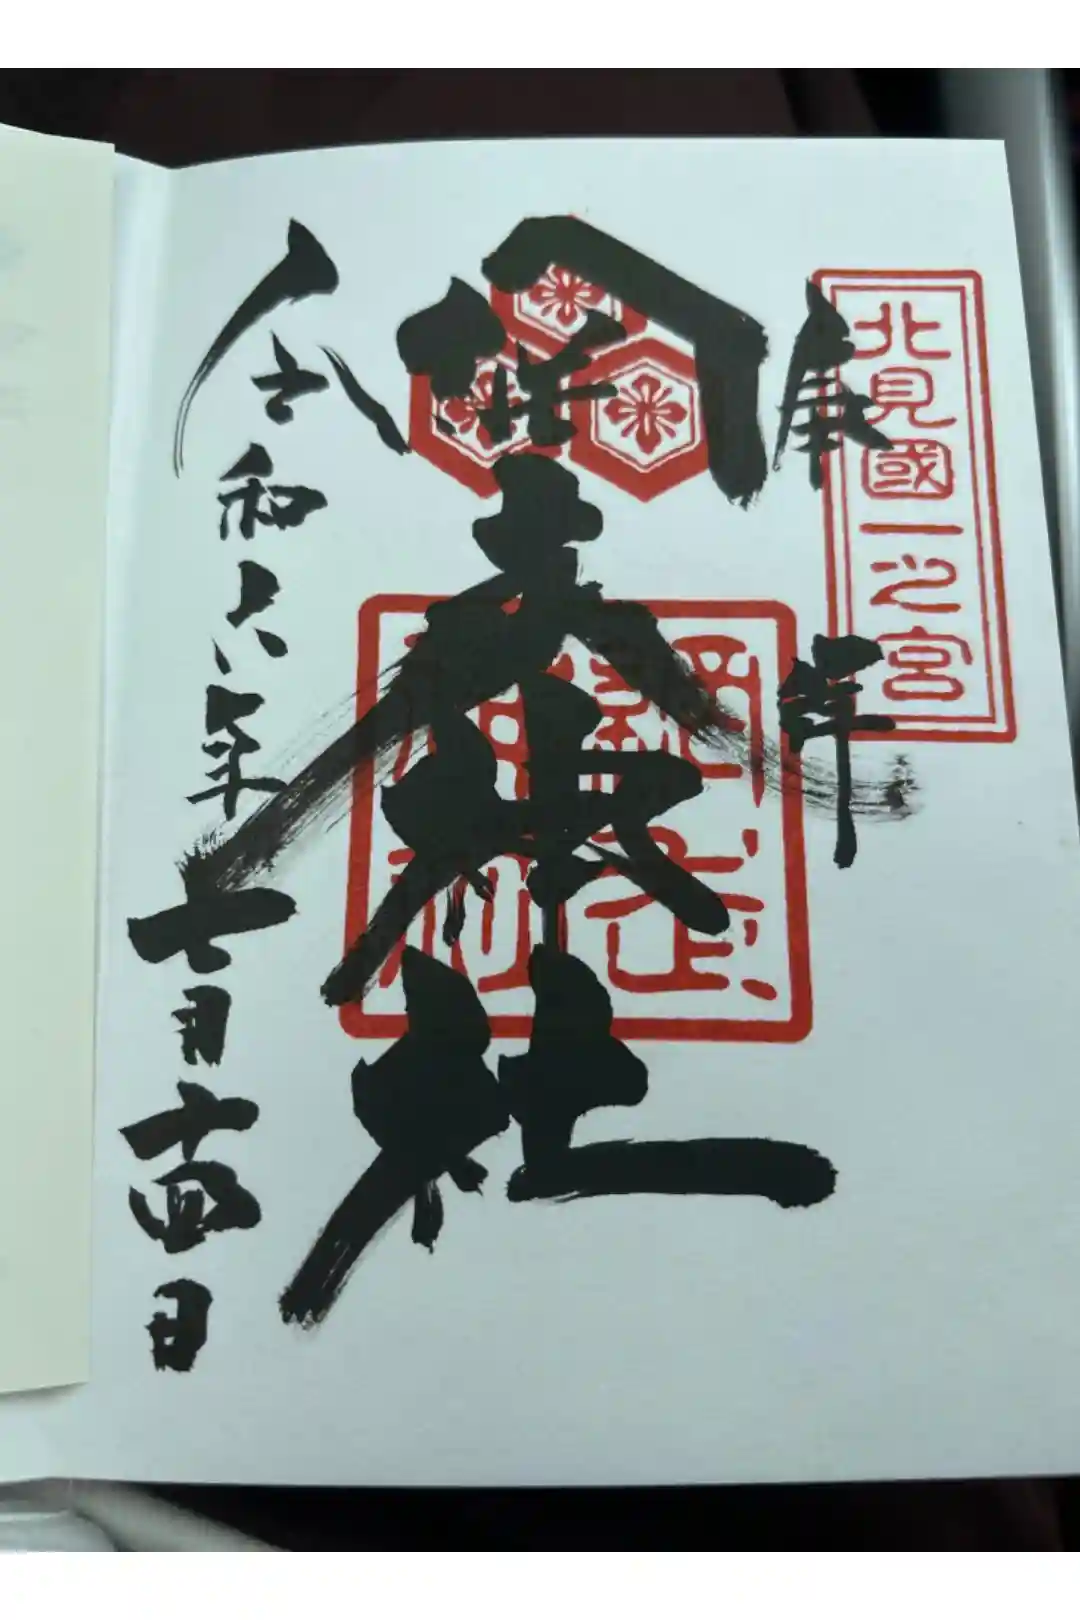 北見國一之宮
奉拝
網走神社
令和六年
七月十四日